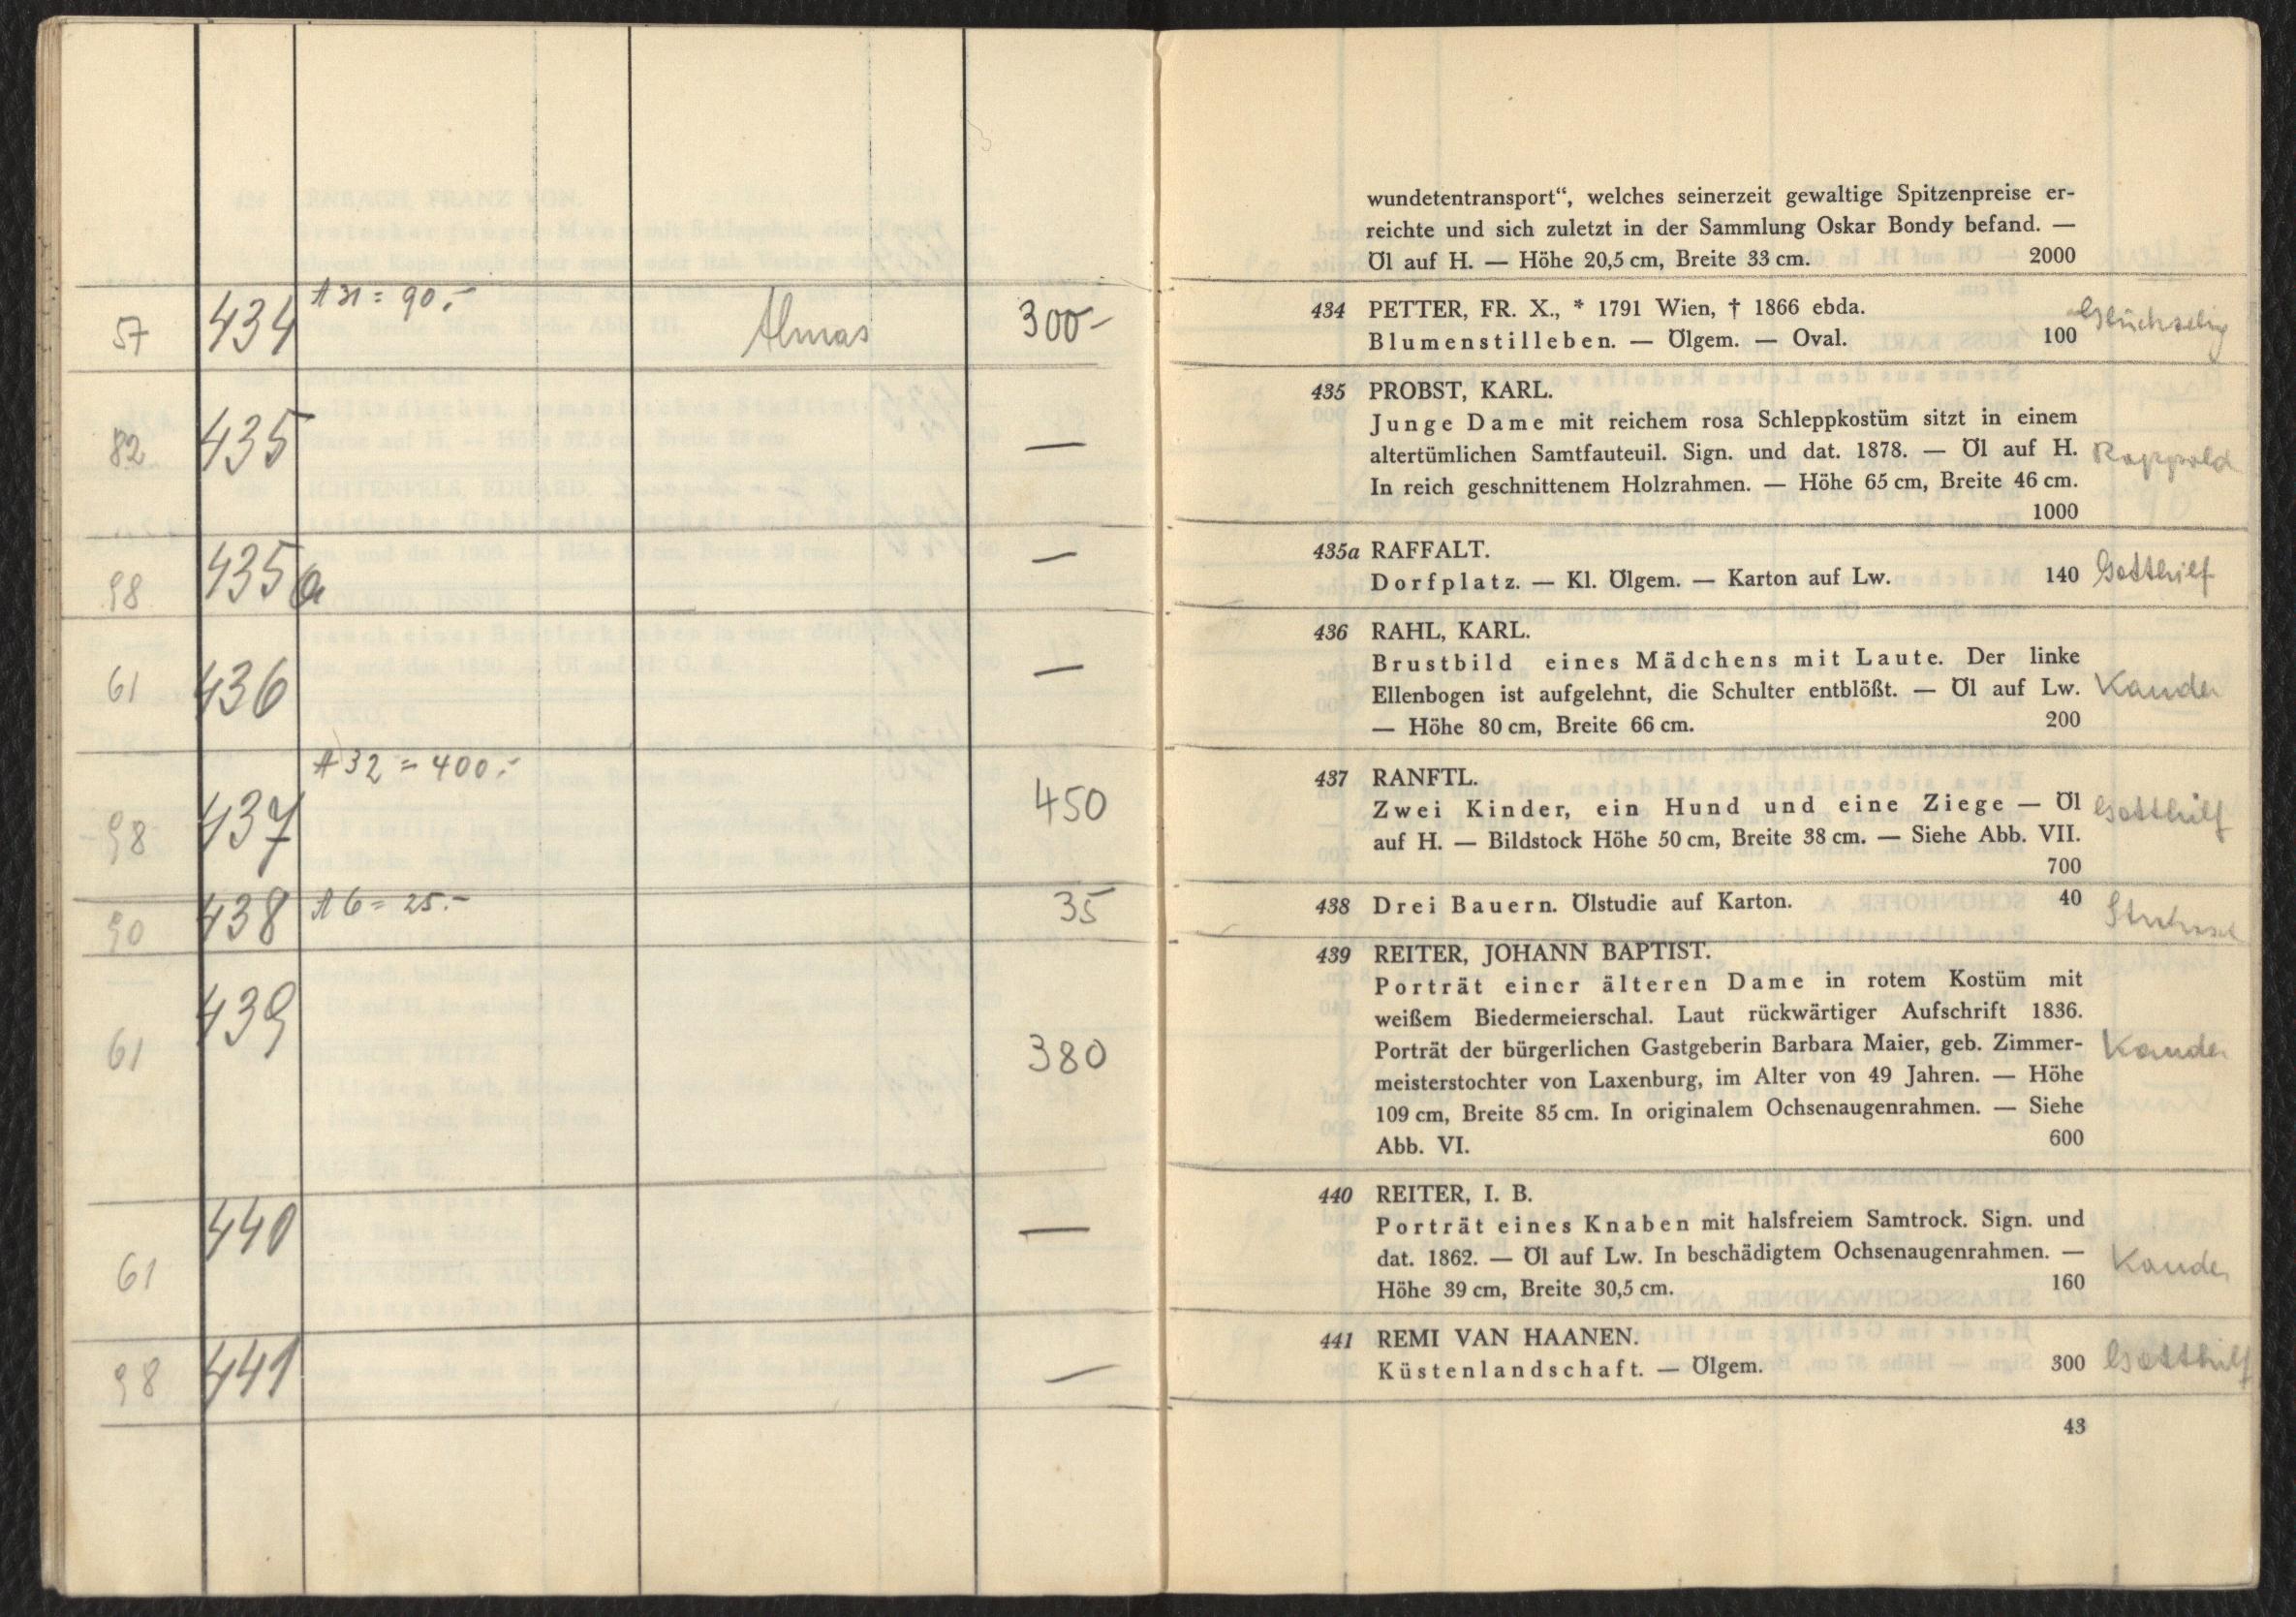 57 434 A 31 = 90.- Almas 300-
82 435 —
98 435a —
61 436 —
98 437 A 32 = 400.- 450
90 438 A 6 = 25.- 35
61 439 380
61 440 —
98 441 —
wundetentransport“, welches seinerzeit gewaltige Spitzenpreise er-
reichte und sich zuletzt in der Sammlung Oskar Bondy befand. —
Öl auf H. — Höhe 20,5 cm, Breite 33 cm. 2000
434 PETTER, FR. X., * 1791 Wien, † 1866 ebda.
Glückselig
Blumenstilleben. — Ölgem. — Oval. 100
435 PROBST, KARL.
Junge Dame mit reichem rosa Schleppkostüm sitzt in einem
altertümlichen Samtfauteuil. Sign. und dat. 1878. — Öl auf H. Rappold
In reich geschnittenem Holzrahmen. — Höhe 65 cm, Breite 46 cm.
1000
435a RAFFALT.
Dorfplatz. — Kl. Ölgem. — Karton auf Lw. 140 Gotthilf
436 RAHL, KARL.
Brustbild eines Mädchens mit Laute. Der linke
Ellenbogen ist aufgelehnt, die Schulter entblößt. — Öl auf Lw. Kander
— Höhe 80 cm, Breite 66 cm. 200
437 RANFTL.
Zwei Kinder, ein Hund und eine Ziege — Öl Gotthilf
auf H. — Bildstock Höhe 50 cm, Breite 38 cm. — Siehe Abb. VII.
700
438 Drei Bauern. Ölstudie auf Karton. 40
439 REITER, JOHANN BAPTIST.
Porträt einer älteren Dame in rotem Kostüm mit
weißem Biedermeierschal. Laut rückwärtiger Aufschrift 1836.
Porträt der bürgerlichen Gastgeberin Barbara Maier, geb. Zimmer- Kander
meisterstochter von Laxenburg, im Alter von 49 Jahren. — Höhe
109 cm, Breite 85 cm. In originalem Ochsenaugenrahmen. — Siehe
Abb. VI. 600
440 REITER, I. B.
Porträt eines Knaben mit halsfreiem Samtrock. Sign. und
dat. 1862. — Öl auf Lw. In beschädigtem Ochsenaugenrahmen. — Kander
Höhe 39 cm, Breite 30,5 cm. 160
441 REMI VAN HAANEN.
Küstenlandschaft. — Ölgem. 300 Gotthilf
43